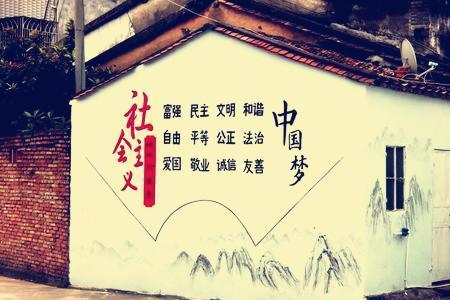 社会主义
富强 民主 文明 和谐
自由 平等 公正 法治
爱国 敬业 诚信 友善
中国梦